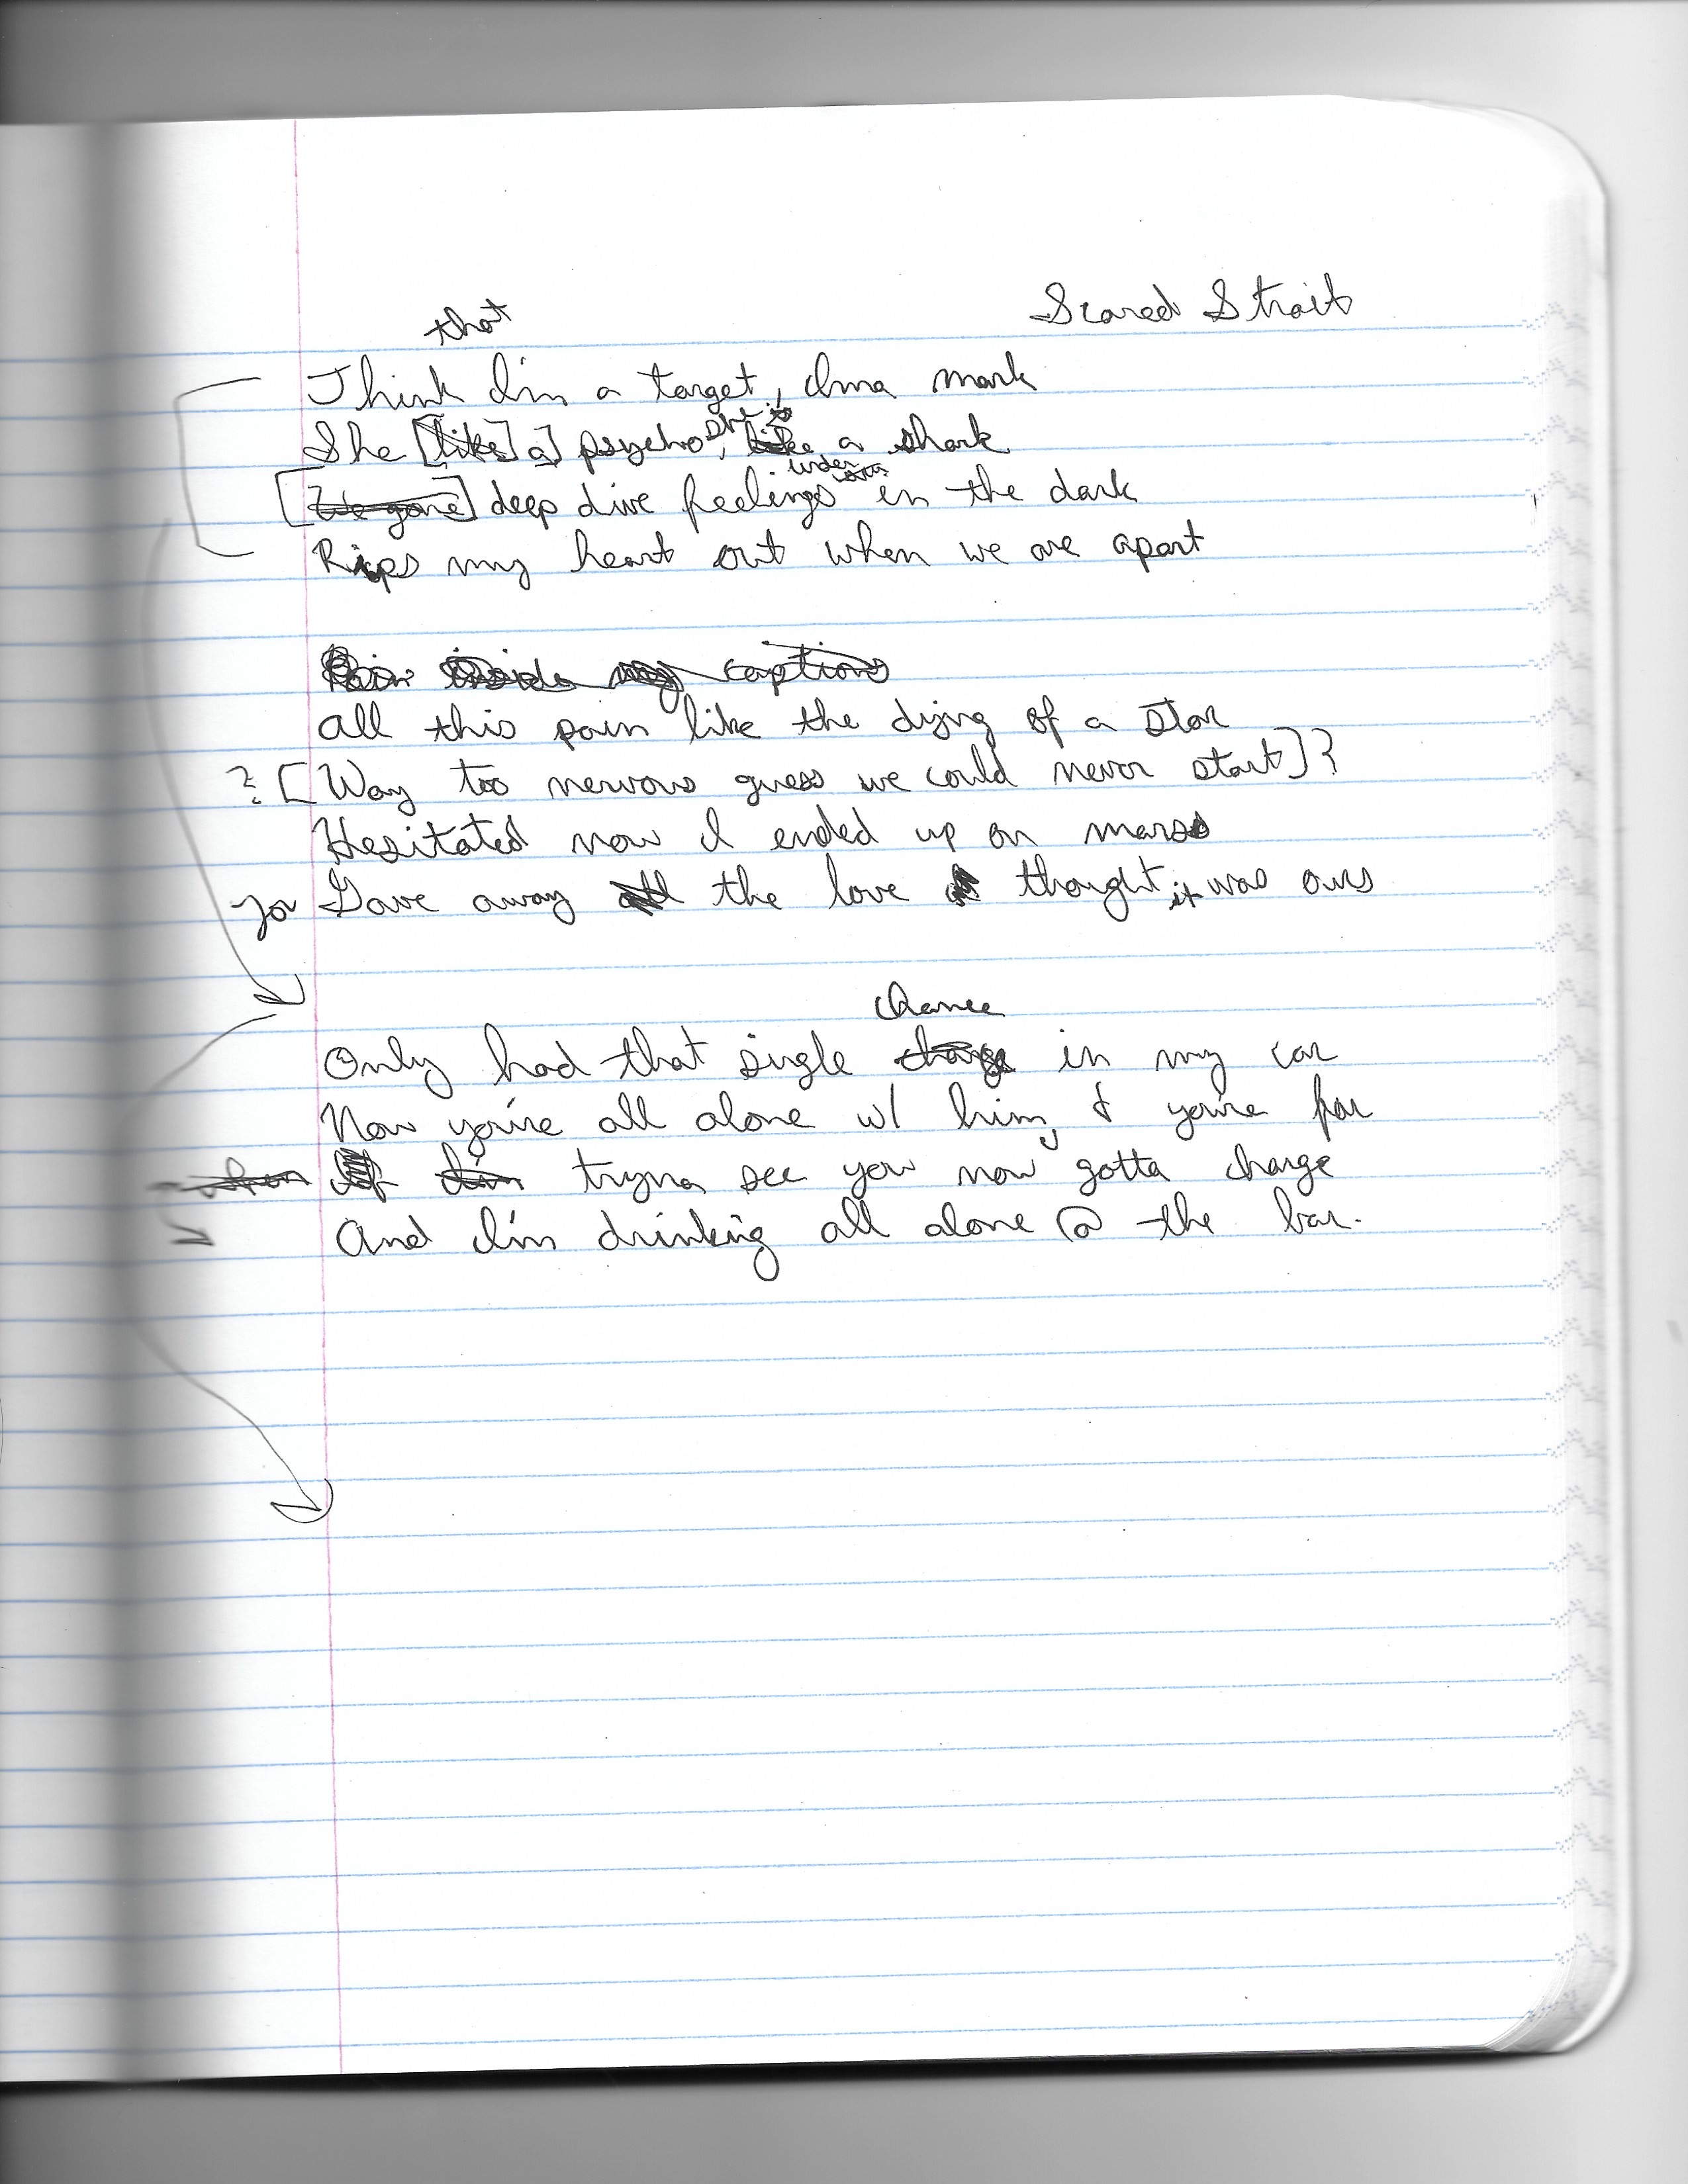 Scared Strait
that
Think I'm a target, Ima mark
She [like] a] psycho, she is like a shark
[We gone] deep dive feelings under in the dark
Rips my heart out when we are apart
inside my caption
all this pain like the dying of a star
? [Way too nervous guess we could never start] ?
Hesitated now I ended up on mars
for Gave away all the love thought it was ours
chance
Only had that single change in my car
Now you're all alone w/ him, & you're far
when If I'm tryna see you now gotta charge
And I'm drinking all alone @ the bar.